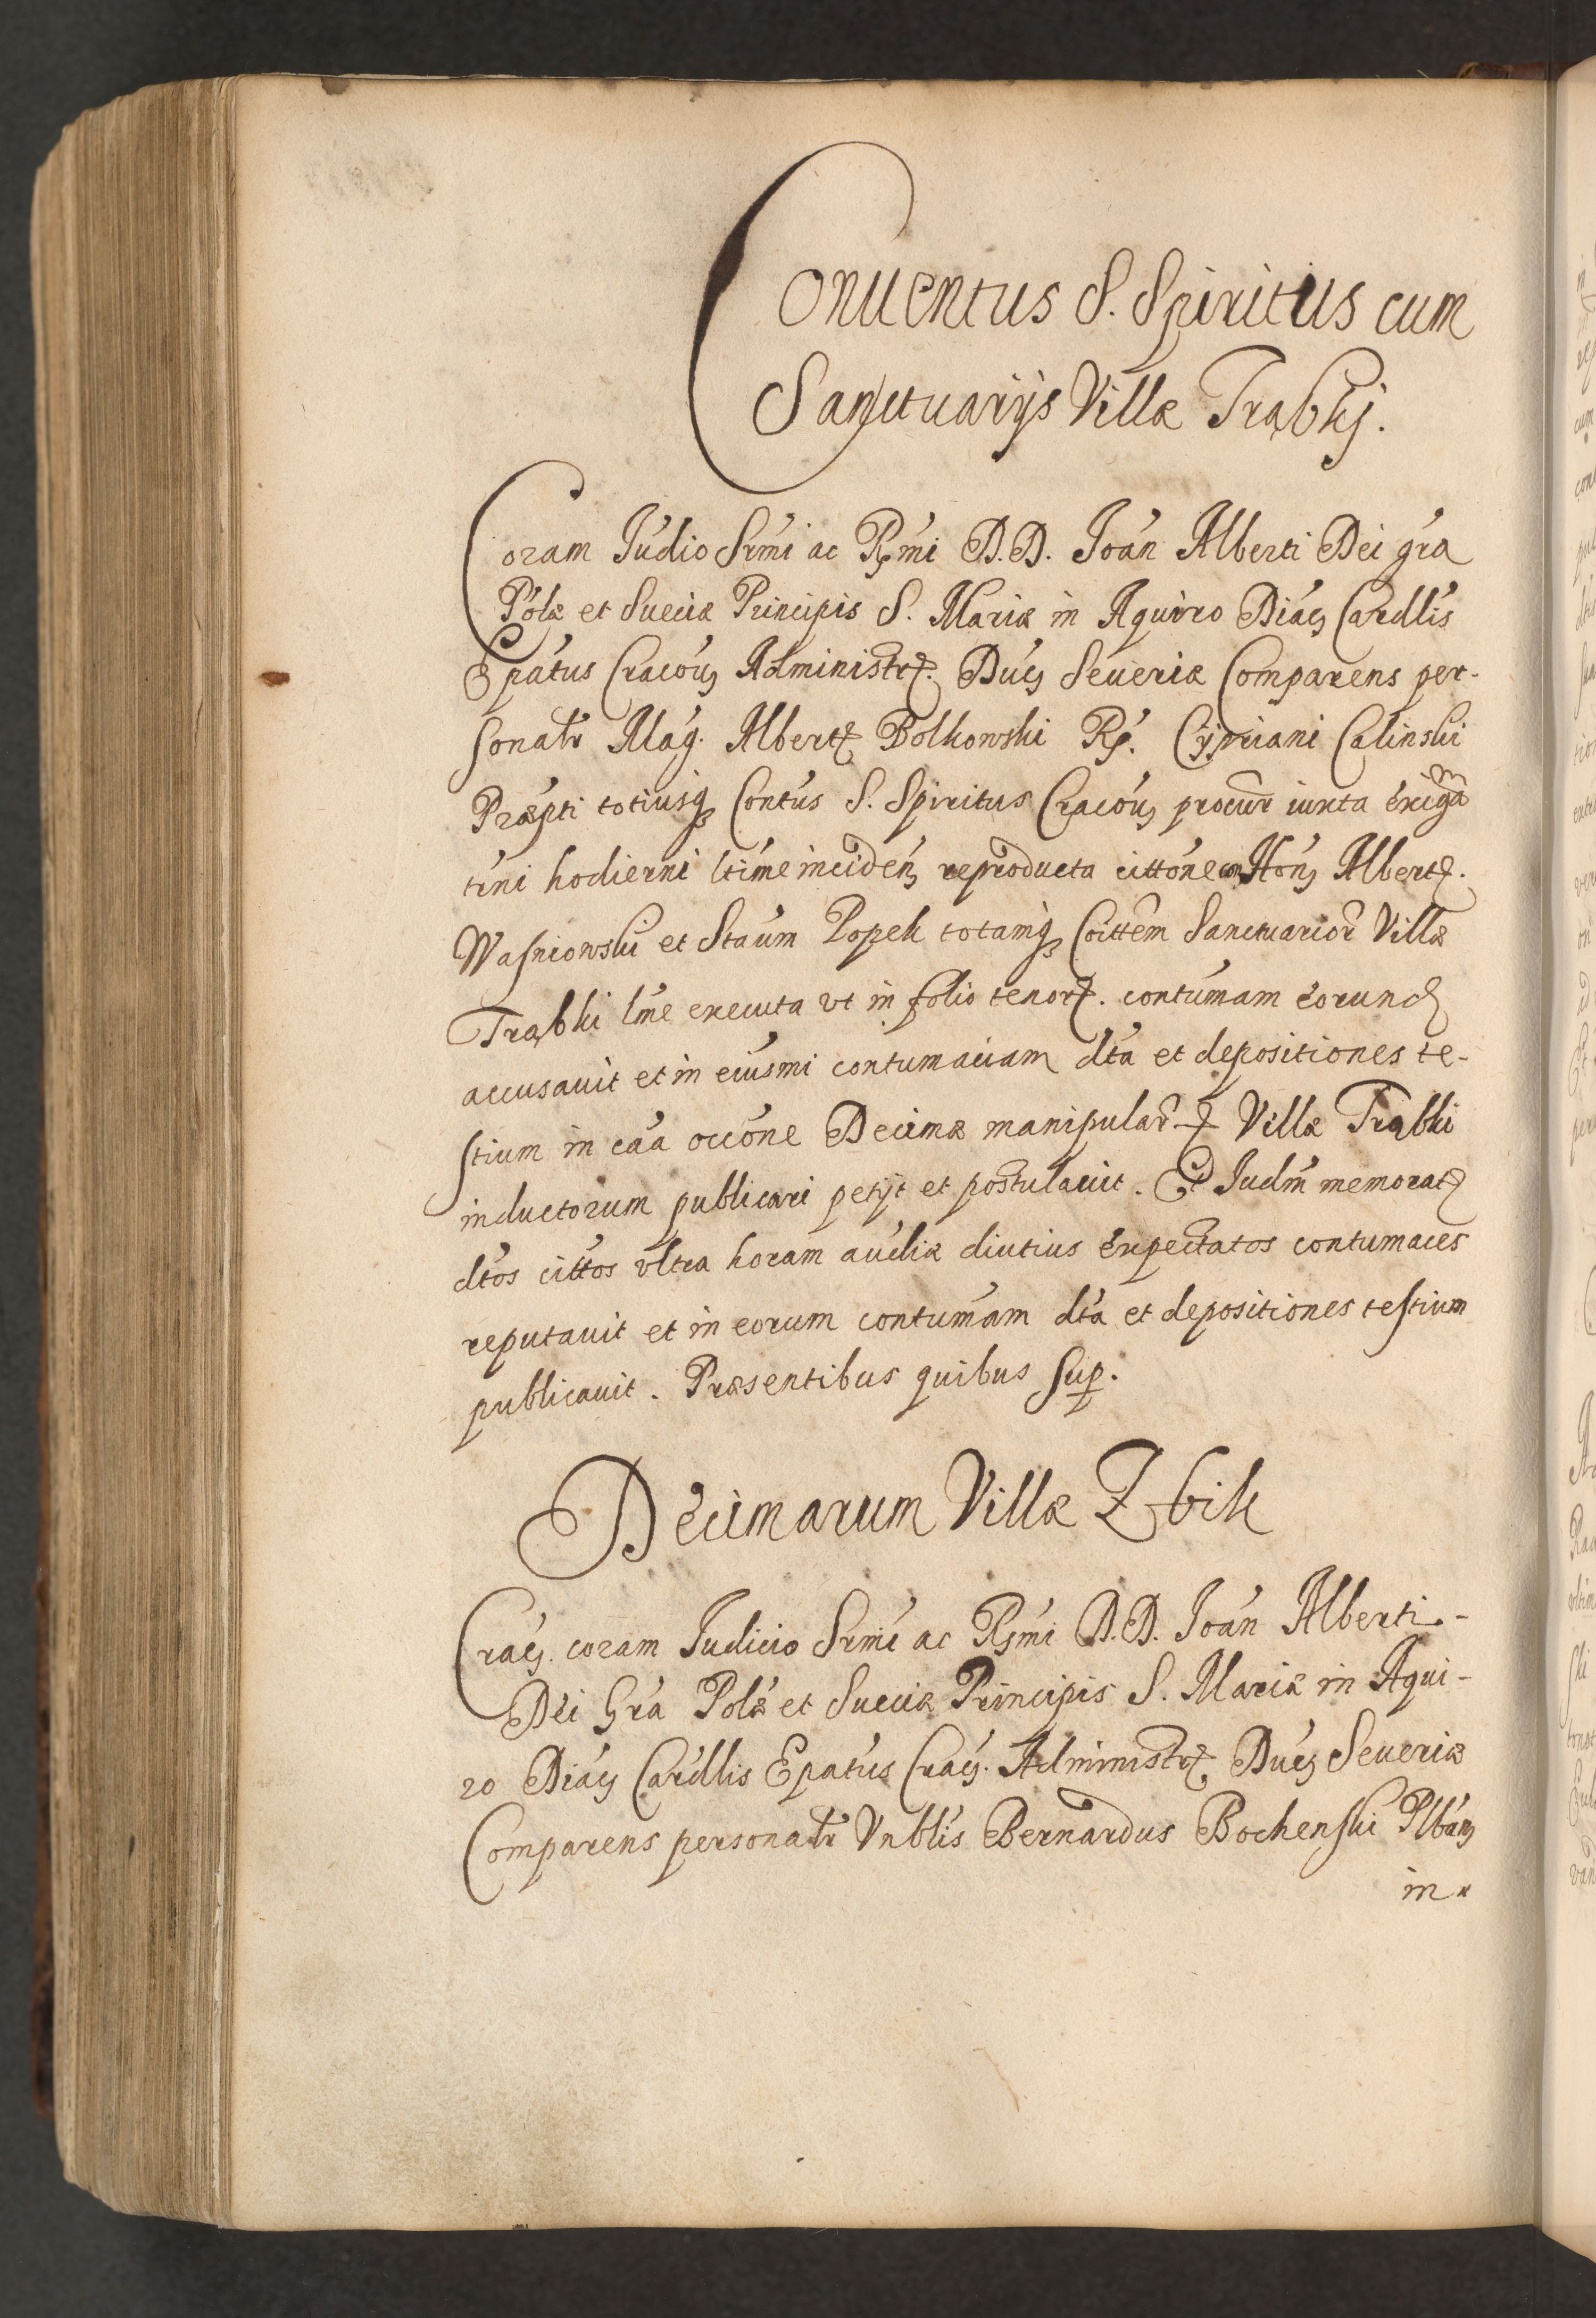 Conuentus S. Spiritus cum
Sanctuarijs Villæ Trąbkj.
Coram Iúdio Srmi ac Rsmi D.D. Ioán Alberti Dei gra
Polæ et Sueciæ Principis S. Mariæ in Aquiro Diaę Cardllis
Epatus Cracouę Administrꝭ. Ducę Seueriæ Comparens per-
sonalr Mag. Albertꝭ Bolkowski Rꝭ. Cypriani Calinski
Præpti totiusqꝫ Contus S. Spiritus Cracouę procur iuxta exigam
trni hodierni ltime incidenę reproducta cittone con Honę Albertꝭ.
Wasniowski et Staum Popek totamqꝫ Coittem Sanctuarior Villæ
Trąbki lme executa vt in folio tenorꝭ. contumam eorundꝭ
accusauit et in eiusmi contumaciam dta et depositiones te-
stium in caa occone Decimæ manipularꝭ Villæ Trąbki
inductorum publicari petijt et postulauit. Et Iudm memoratꝭ
dtos cittos vltra horam audiæ diutius expectatos contumaces
reputauit et in eorum contumam dta et depositiones testium
publicauit. Præsentibus quibus sup.
Decimarum Villæ Zbik
Cracę. coram Iudicio Srmi ac Rsmi D.D. Ioán Alberti-
Dei Gra Polæ et Sueciæ Principis S. Mariæ in Aqui-
ro Diaę Cardllis Epatus Cracę. Administrꝭ Ducę Seueriæ
Comparens personalr Vnblis Bernardus Bochenski Plbanę
in